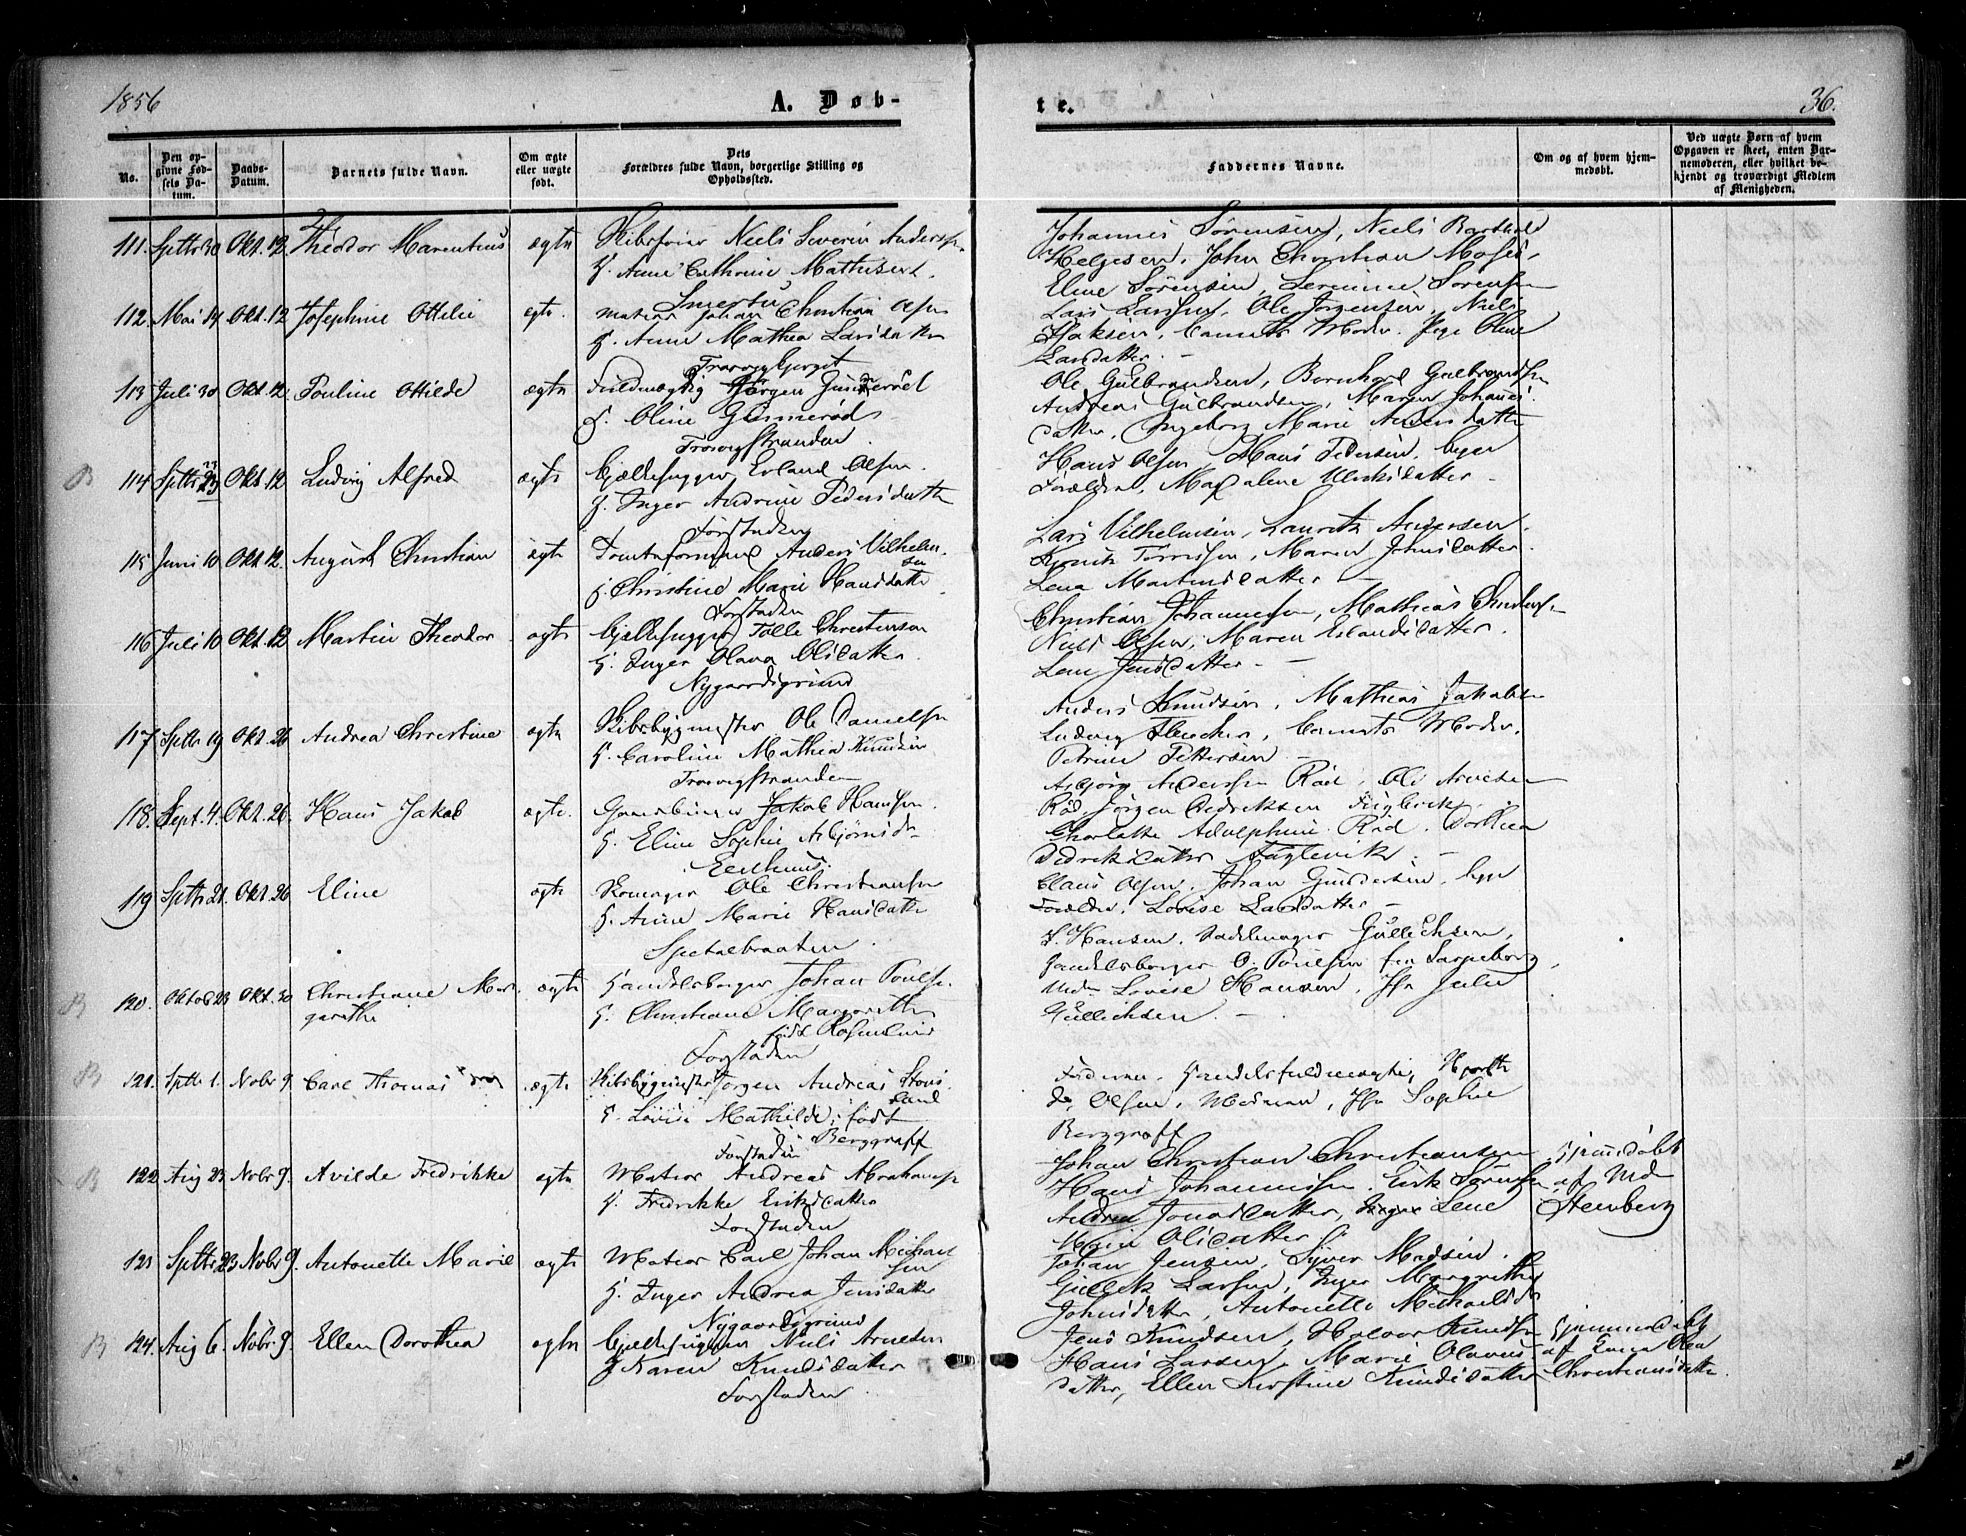 1856
A. Døb-
te.
36.
No.
Den op-
givne Fød-
sels Da-
tum.
Daabs-
Datum.
Barnets fulde Navn.
Om ægte
eller uægte
født.
Dets
Forældres fulde Navn, borgerlige Stilling og
Opholdssted.
Faddernes Navne.
Om og af hvem hjem-
medøbt.
Ved uægte Børn af hvem
Opgaven er skeet, enten Bar-
nemoderen, eller hvilket be-
kjendt og troværdigt Medlem
af Menigheden.
111. Sptbr 30 Okt. 12. Theodor Marentius ægte Niels Severin Anders
H. Anne Cathrine Mathisen.
Johannes Sørensen, Niels Barthold
Helgesen, John Christian Moses,
Eline Sørensen, Sørensen
112. Mai 14 Okt. 12 Josephine Ottilie egte. Matros Johan Christian Olsen
H. Anne Mathea Larsdatter
Lars Larsen, Ole Jørgensen, Niels
Isaksen, Barnets Moder. Pige Oline
Larsdatter. -
Trosvigbjerget
113 Juli 30 Okt. 12. Pauline Otilde ægte Fuldmægtig Jørgen Gunnerød
H. Oline Gunnerød
Trosvigstranden.
Ole Gulbrandsen, Bernhard Gulbrandsen
Andreas Gulbrandsen, Maren Johannes-
datter, Ingeborg Marie Andersdatter
B 114 Sptbr 23 Okt. 12 Ludvig Alfred ægte Bjælkehugger Erland Olsen.
H. Inger Andrine Pedersdatter
Forstaden
Hans Olsen, Hans Pedersen, begge
Forældre, Magdalene Ulriksdatter -
115 Juni 10 Okt. 12. August Christian ægte Tomteformand Anders Vilhelm-
sen
H. Christine Marie Hansdatter
Forstaden
Lars Vilhelmsen, Lauritz Andersen
Henrik Tørrissen, Maren Johnsdatter.
Lena Martinsdatter -
116 Juli 10 Okt. 12 Martin Theodor ægte Bjælkehugger Tolle Christensen
H. Inger Olava Olsdatter
Nygaardsgrund
Christian Johannesen, Mathias
Niels Olsen, Maren Erlandsdatter.
Lene Jensdatter -
117 Sptbr 19 Okt. 26 Andrea Christine ægte Skibsbygmester Ole Danielsen
H. Caroline Mathea Knudsen
Trosvigstranden
Anders Knudsen, Mathias Jakobsen
Ludvig Fleischer, Barnets Moder,
Petrine Pettersen -
118. Sept. 4. Okt. 26. Hans Jakob ægte. Gaardbruger Jakob Hansen.
H. Eline Sophie Asbjørnsd.
Asbjørn Andersen Rød, Ole Arvesen
Rød, Jørgen Dedriksen Fuglevik
Charlotte Adolphine Rød. Dorthea
Dedriksdatter Fuglevik. -
119 Sptbr 21. Okt. 26 Eline ægte Skomager Ole Christiansen
H. Anne Marie Hansdatter
Spetalbraaten.
Claus Olsen, Johan Gundersen, begge
Forældre, Lovise Larsdatter -
B 120. Oktob 23 Okt. 30 Christiane Mar-
garethe ægte Handelsborger Johan Poulse.
H. Christiane Margarethe
født Rosenlund
Forstaden
Hansen, Sadelmager Gullichsen,
Handelsborger O. Poulsen fra Sarpsborg,
Md. Lovise Hansen, Jfr Julie
Gullichsen -
B 121. Sptbr 1. Nobr 9. Carl Thomas ægte Skibsbygmester Jørgen Andreas Stous-
land
H. Lovise Mathilde, født
Berggraff
Forstaden
Faderen, Handelsfuldmægtig Hjorth
do, Olsen, Madman, Jfr Sophie
Berggraff
B 122 Aug 23 Nobr 9. Avilde Fredrikke ægte Matros Andreas Abrahamsen
H. Fredrikke Eriksdatter
Forstaden
Johan Christian Christiansen
Hans Johannessen, Erik Sørensen
Andrea Jonasdatter, Lene
Marie Olsdatter
Hjemdøbt
af Md
Stenberg
123 Sptbr 23 Nobr 9. Antonette Marie ægte Matros Carl Johan Michael-
sen
H. Inger Andrea Jensdatter
Nygaardsgrund
Johan Jensen, Syver Madsen.
Gullik Larsen, Inger Margrethe
Johnsdatter, Antonette Michaelsd.
B 124. Aug 6. Nobr 9. Ellen Dorothea ægte Bjelkehugger Niels Arnesen
H. Karen Knudsdatter
Forstaden
Jens Knudsen, Halvor Knudsen
Hans Larsen, Marie Olavus-
datter, Ellen Kirstine Knudsdatter
Hjemmedøbt
af Lena
Christiansdatter.